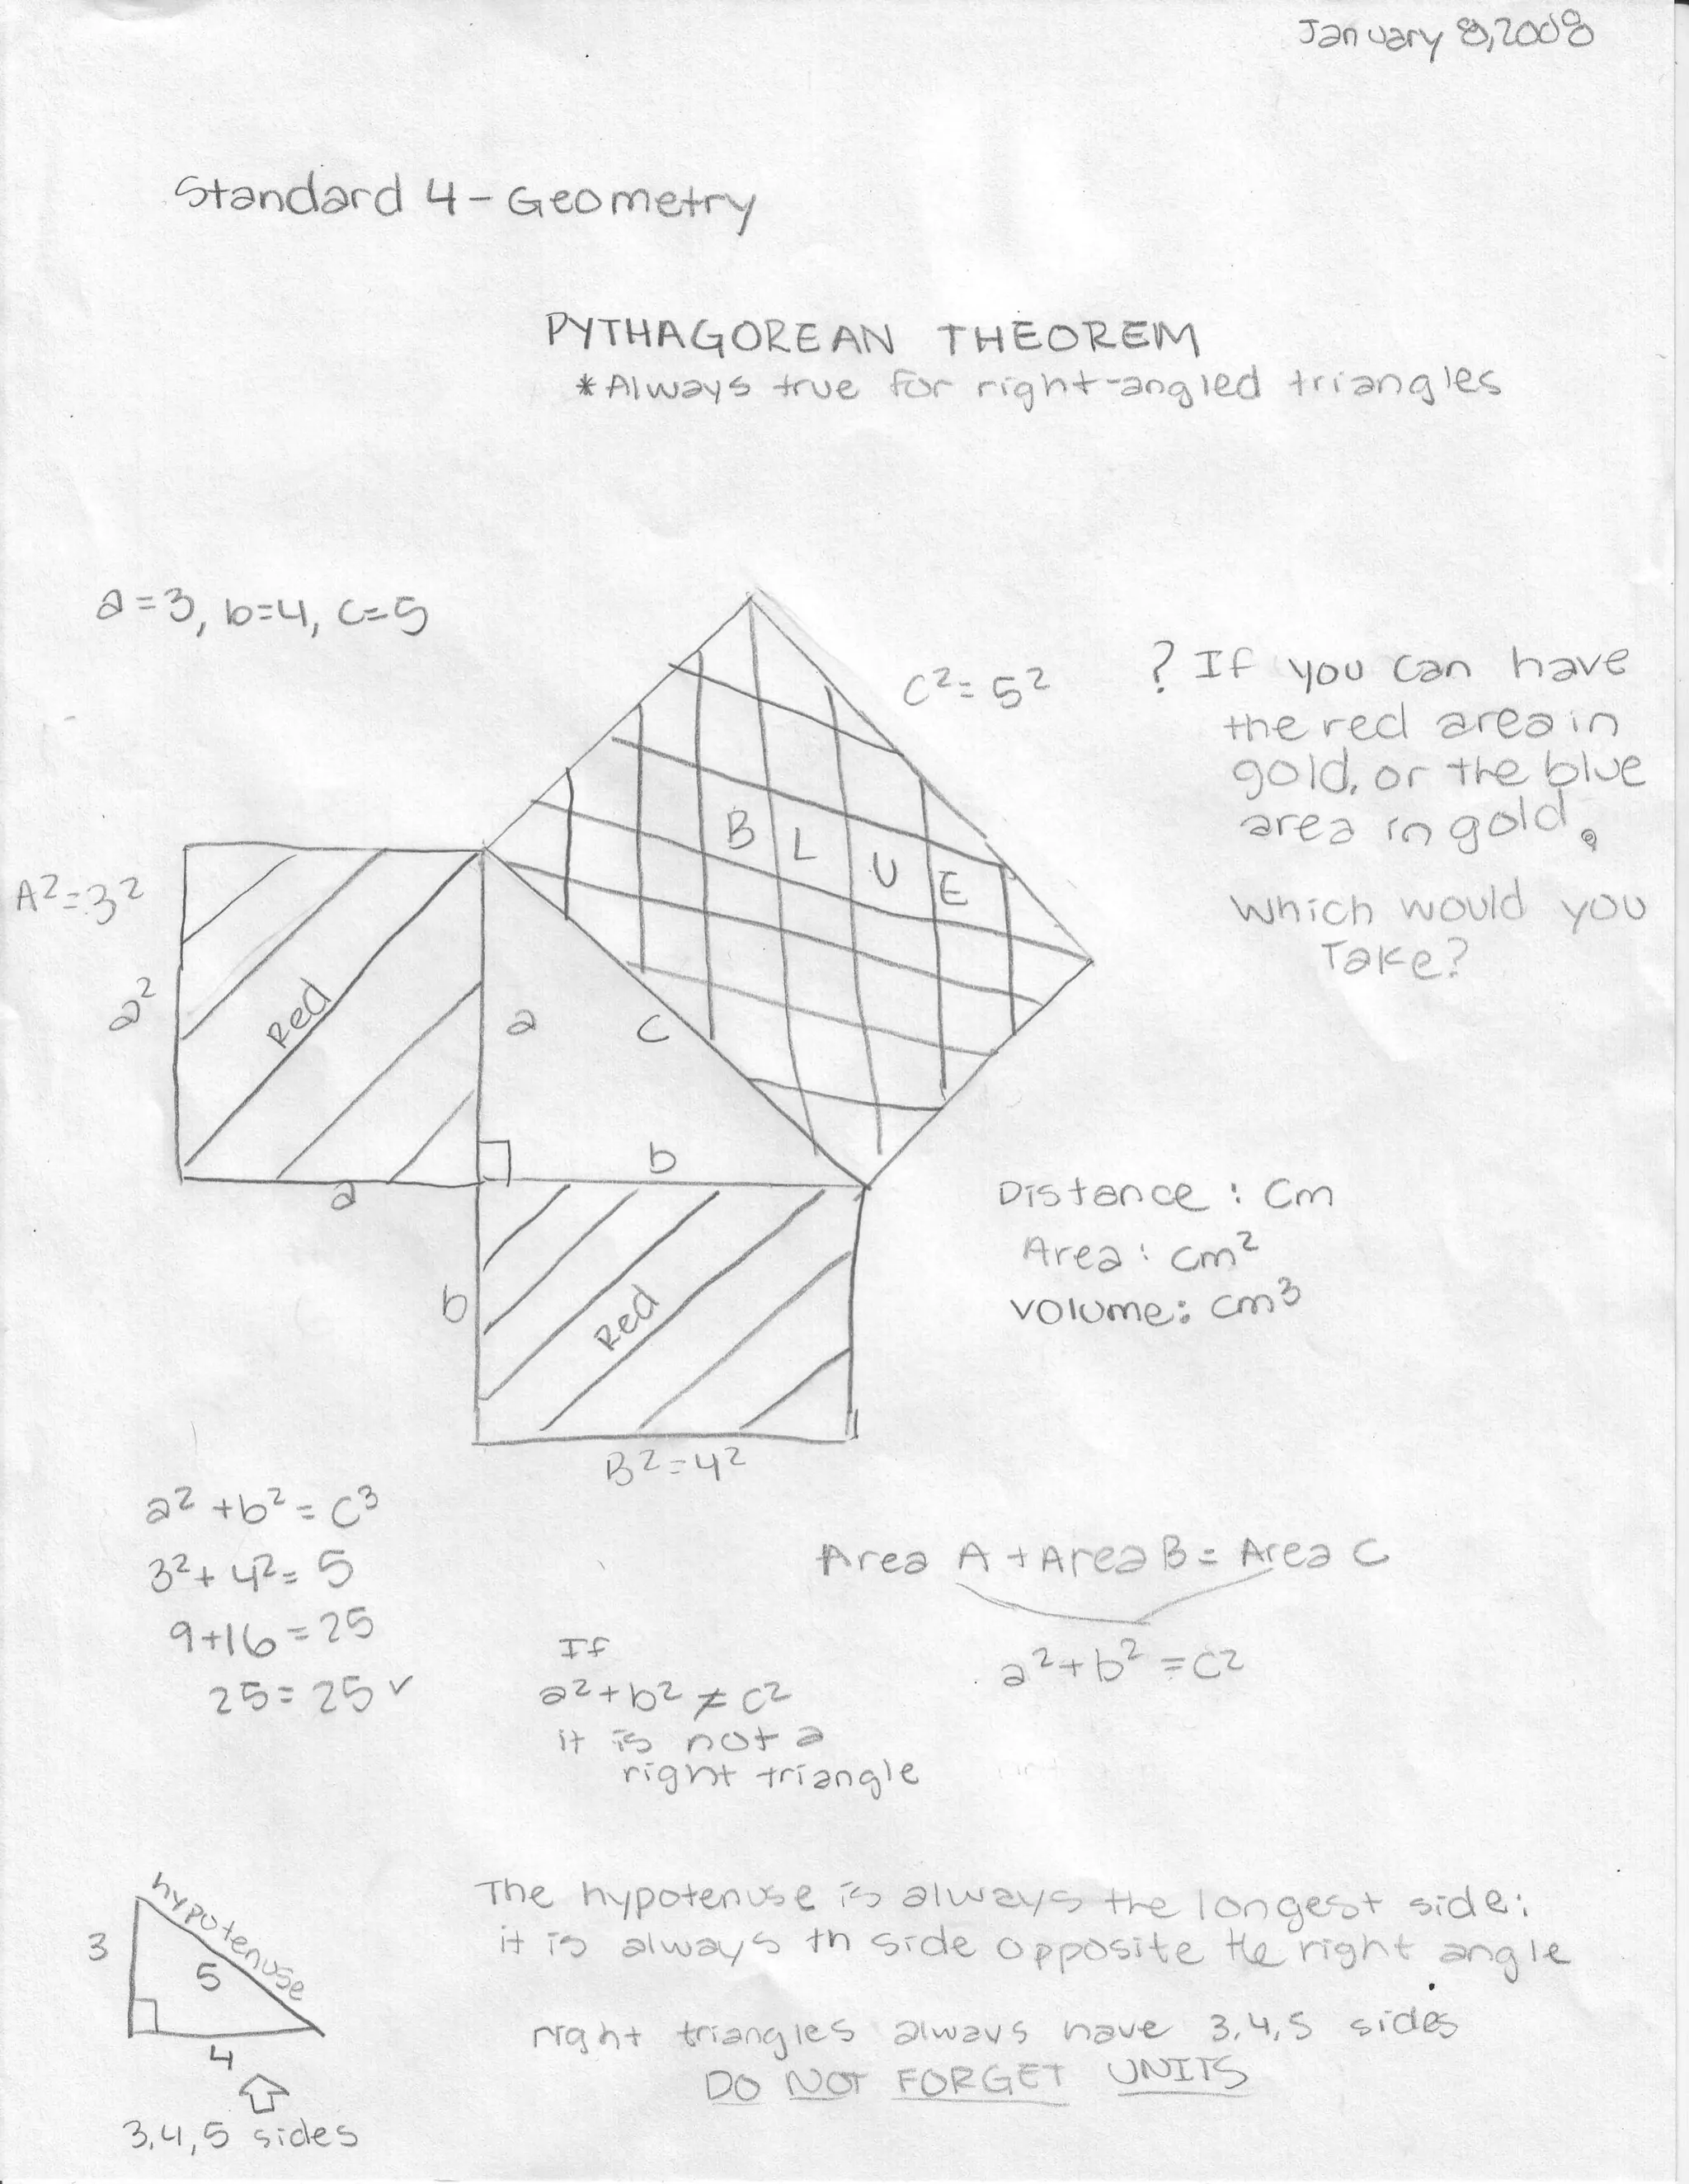 January 8, 2008
Standard 4 - Geometry
PYTHAGOREAN THEOREM
*Always true for right-angled triangles
a=3, b=4, c=5
C²=5²
? If you can have
the red area in
gold, or the blue
area in gold.
Which would you
Take?
B L U E
A²=3²
a²
Red
a
c
a
b
Distance : cm
Area : cm²
Volume: cm³
b
Red
B²=4²
a²+b²=c³
3²+4²=5
9+16=25
25=25✓
Area A + Area B = Area C
a²+b²=c²
If
a²+b²≠c²
it is not a
right triangle
hypotenuse
3
5
4
3,4,5 sides
The hypotenuse is always the longest side:
it is always th side opposite the right angle
right triangles always have 3,4,5 sides
DO NOT FORGET UNITS